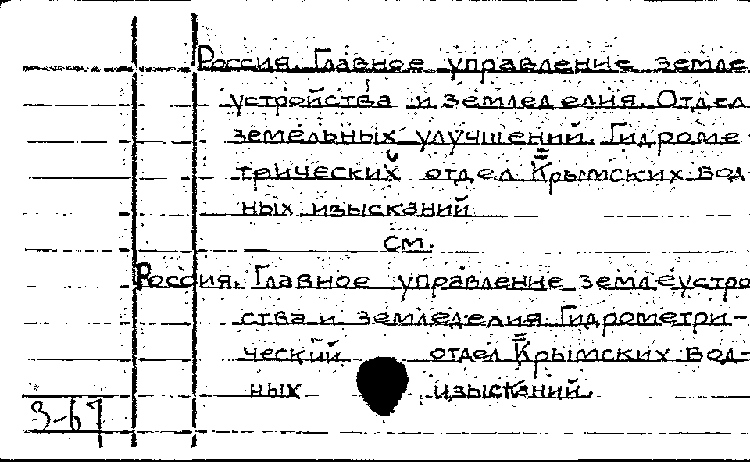 Россия. Главное управление земле
устройства и земледелия. Отдел
земельных улучшений. Гидроме
трических отдел Крымских вод-
ных изысканий
см.
Россия. Главное управление землеустро
ства и земледелия. Гидрометри-
ческий отдел Крымских вод-
ных изысканий.
3-67